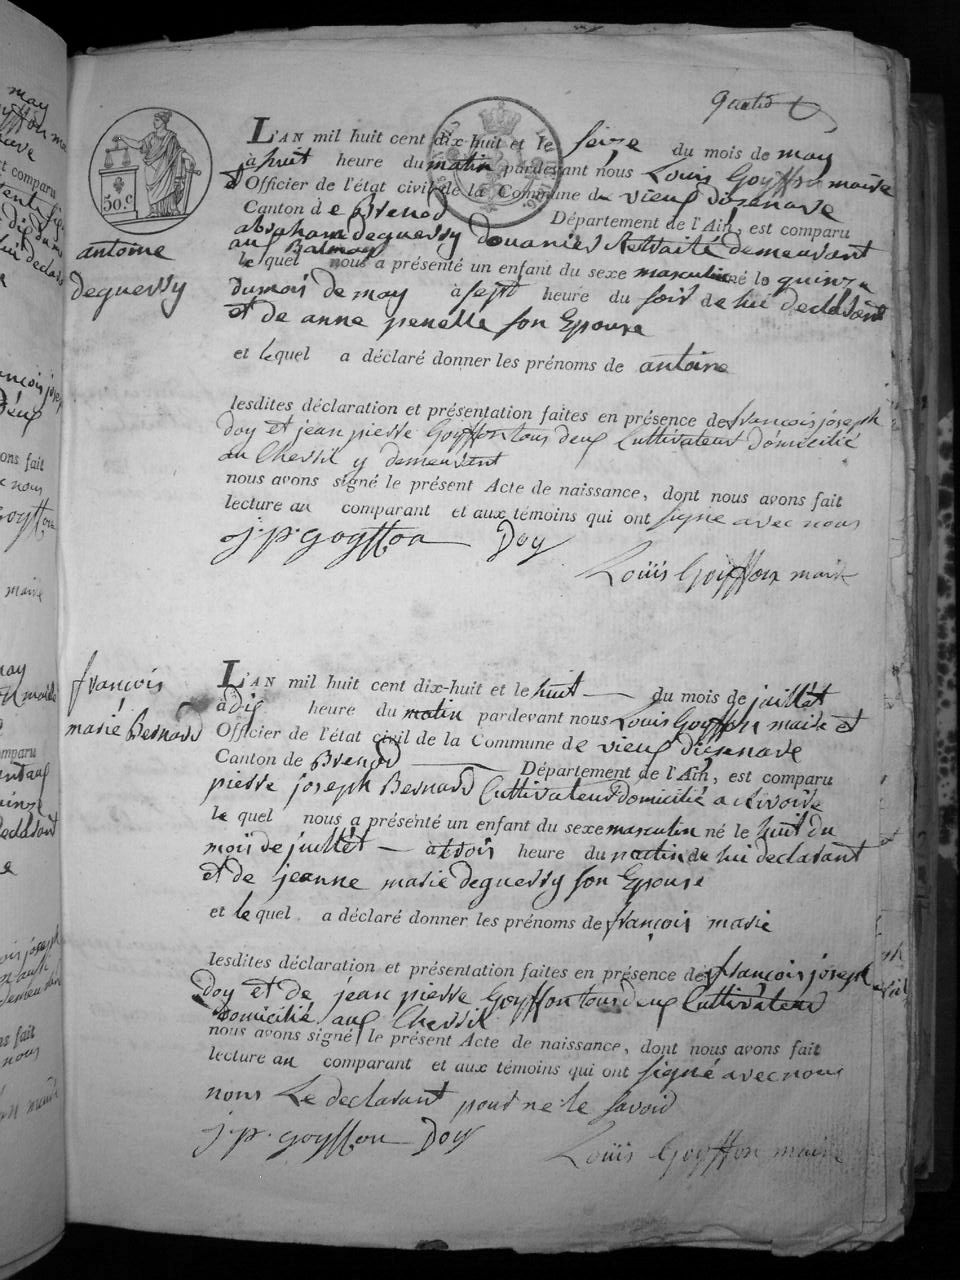 L'AN mil huit cent dix-huit et le seize du mois de may
à huit heure du matin pardevant nous Louis Goyffon maire
et Officier de l'état civil de la Commune de vieux disenave
Canton de Brenod Département de l'Ain, est comparu
abraham deguerry douanier Retraité demeurant
aux Balmay
lequel nous a présenté un enfant du sexe masculin né le quinze
du mois de may à sept heure du soir de lui declarant
et de anne penelle son Epouse
et lequel a déclaré donner les prénoms de antoine
50.c
antoine
deguerry
lesdites déclaration et présentation faites en présence de françois joseph
doy et jean pierre Goyffon tous deux Cultivateur domicilié
au Chevril y demeurant
nous avons signé le présent Acte de naissance, dont nous avons fait
lecture au comparant et aux témoins qui ont signé avec nous
j. p. goyffon Doy
Louis Goyffon maire
françois
marie Bernard
L'AN mil huit cent dix-huit et le huit du mois de juillet
à dix heure du matin pardevant nous Louis Goyffon maire et
Officier de l'état civil de la Commune de vieux disenave
Canton de Brenod Département de l'Ain, est comparu
pierre joseph Bernard Cultivateur domicilié a
lequel nous a présenté un enfant du sexe masculin né le huit du
mois de juillet à trois heure du matin de lui declarant
et de jeanne marie deguerry son Epouse
et lequel a déclaré donner les prénoms de françois marie
lesdites déclaration et présentation faites en présence de françois joseph
Doy et de jean pierre Goyffon tous deux Cultivateur
Domicilié aux Chevril
nous avons signé le présent Acte de naissance, dont nous avons fait
lecture au comparant et aux témoins qui ont signé avec nous
nons Le declarant pour ne le savoir
j. p. goyffon Doy
Louis Goyffon maire